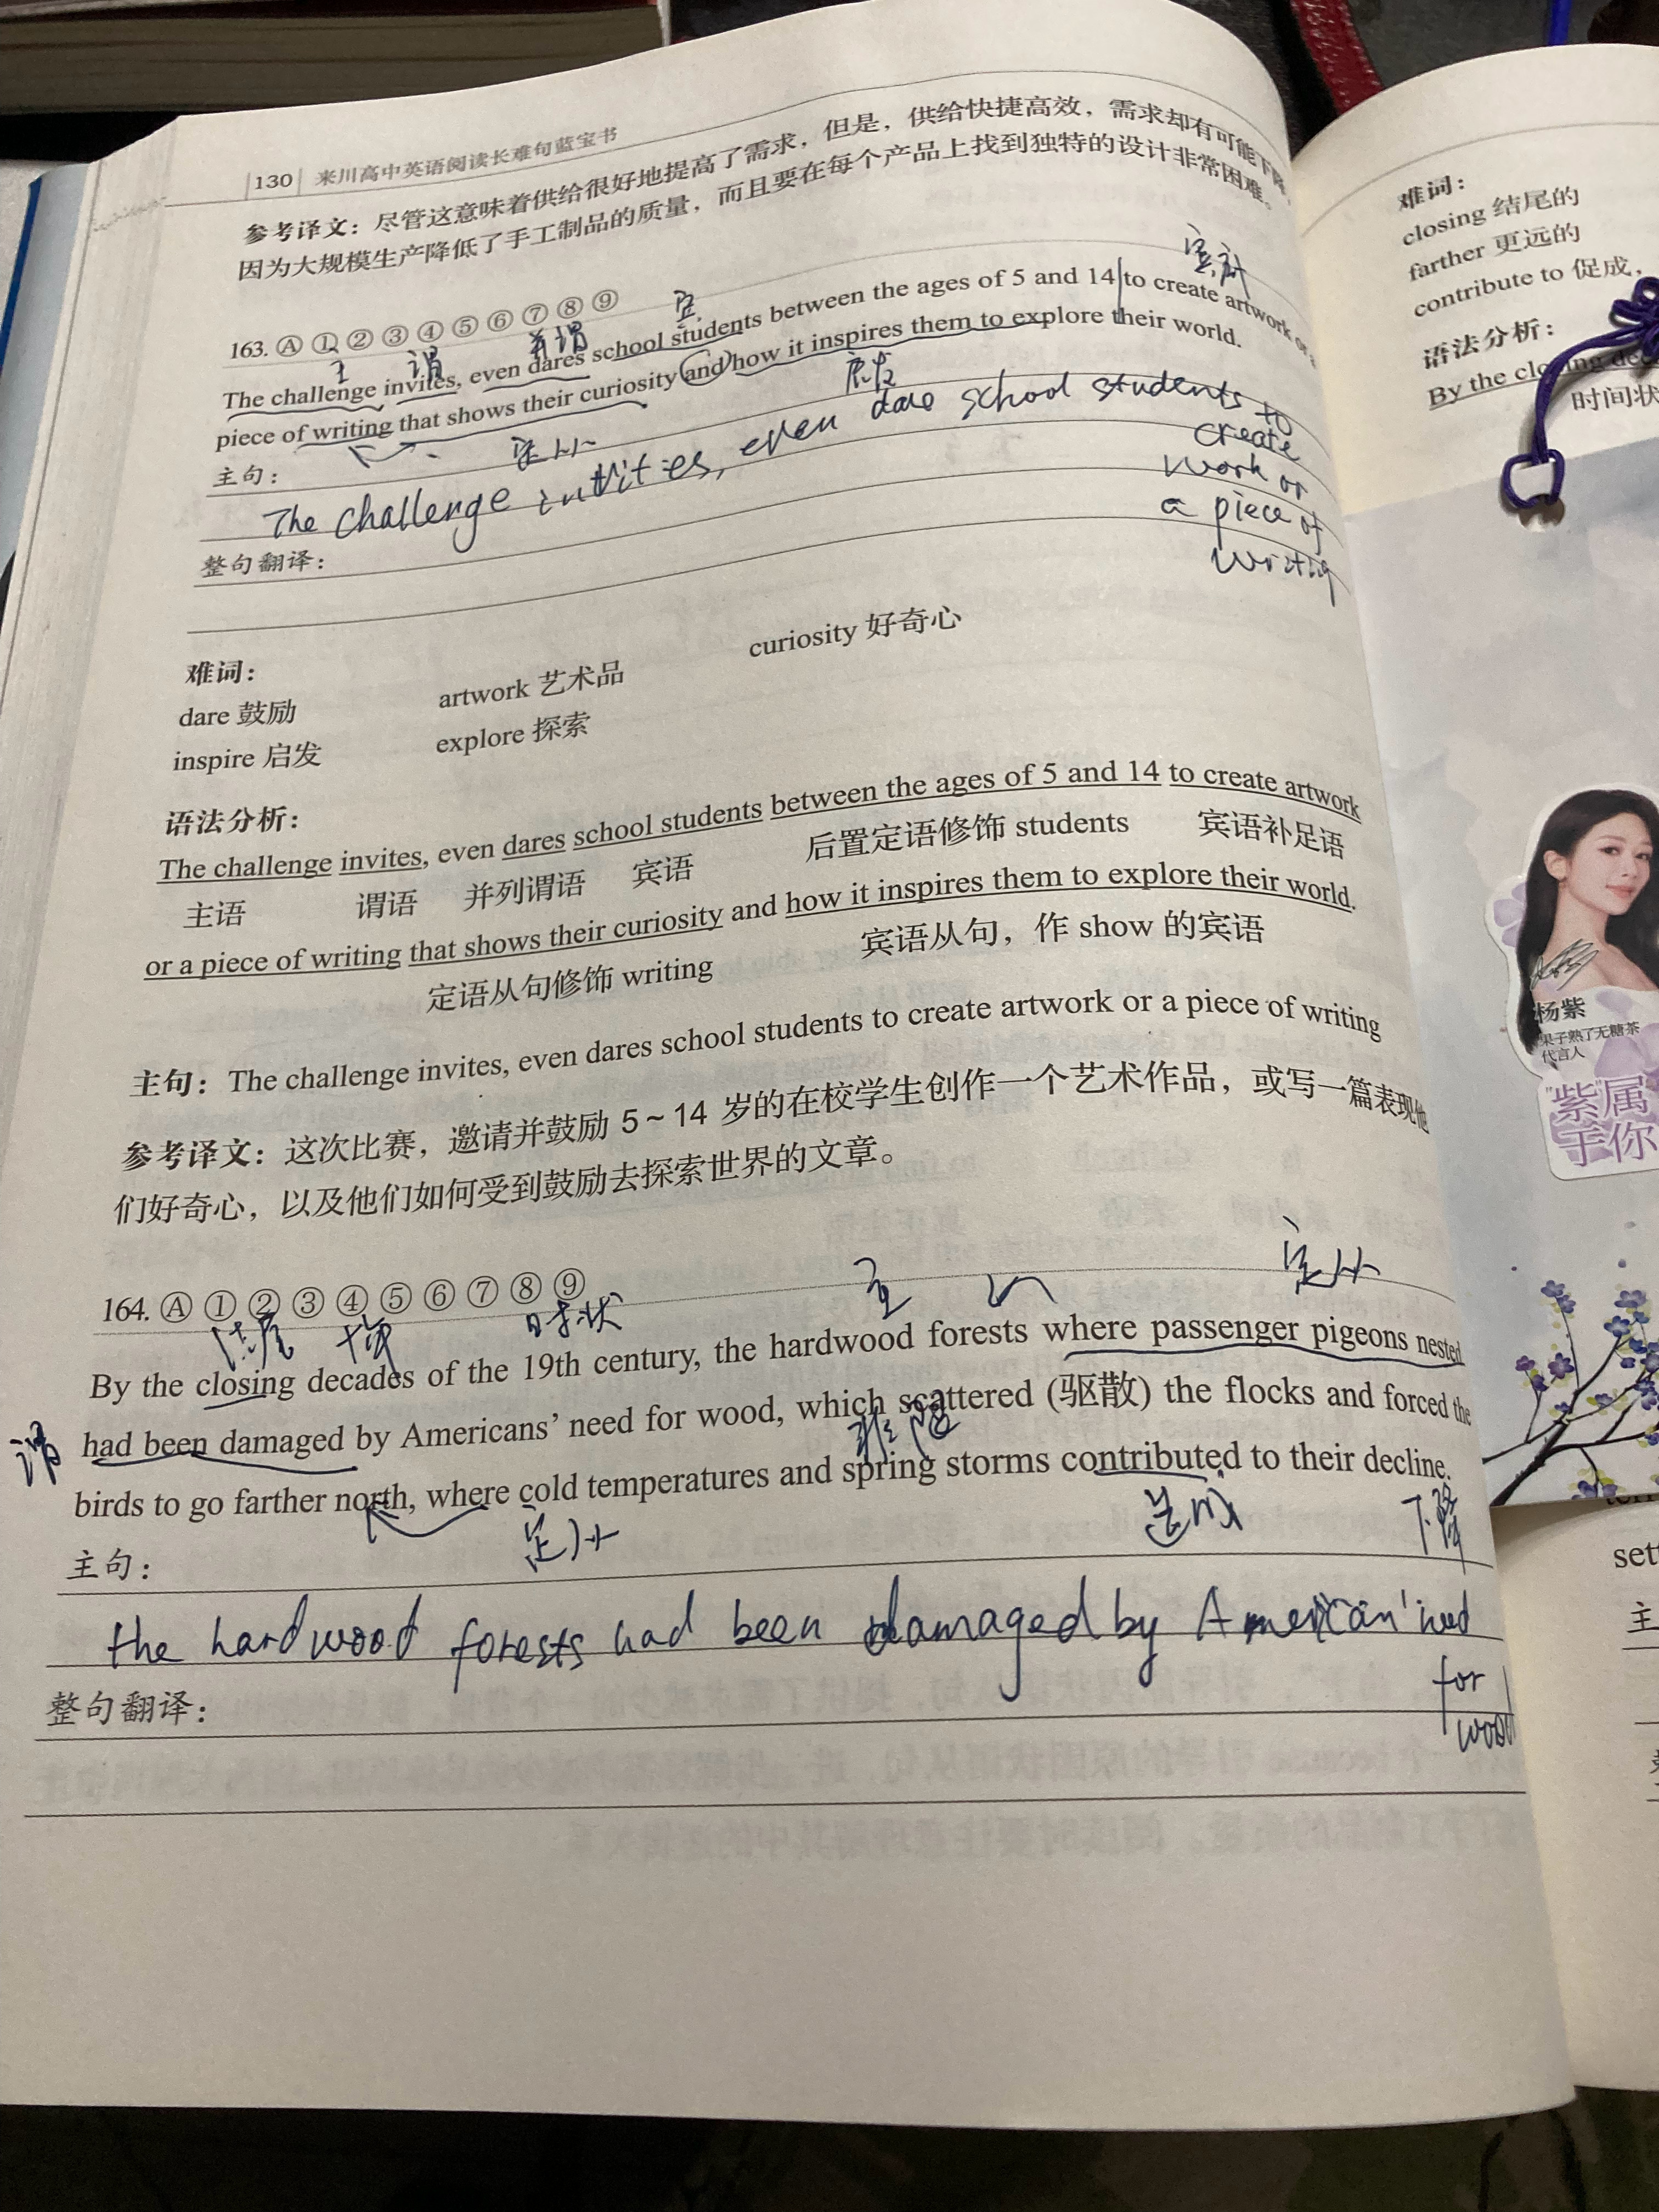 130 来川高中英语阅读长难句蓝宝书
参考译文：尽管这意味着供给很好地提高了需求，但是，供给快捷高效，需求却有可能下降，
因为大规模生产降低了手工制品的质量，而且要在每个产品上找到独特的设计非常困难。
163. Ⓐ ① ② ③ ④ ⑤ ⑥ ⑦ ⑧ ⑨
主 谓 并谓 宾 宾补
The challenge invites, even dares school students between the ages of 5 and 14 to create artwork or a
piece of writing that shows their curiosity and how it inspires them to explore their world.
定从
主句：
The challenge invities, even dare school students to
create
work or
a piece of
writing
整句翻译：
难词：
dare 鼓励 artwork 艺术品 curiosity 好奇心
inspire 启发 explore 探索
语法分析：
The challenge invites, even dares school students between the ages of 5 and 14 to create artwork
主语 谓语 并列谓语 宾语 后置定语修饰 students 宾语补足语
or a piece of writing that shows their curiosity and how it inspires them to explore their world.
定语从句修饰 writing 宾语从句，作 show 的宾语
主句：The challenge invites, even dares school students to create artwork or a piece of writing
参考译文：这次比赛，邀请并鼓励 5~14 岁的在校学生创作一个艺术作品，或写一篇表现他
们好奇心，以及他们如何受到鼓励去探索世界的文章。
164. Ⓐ ① ② ③ ④ ⑤ ⑥ ⑦ ⑧ ⑨
结尾 时状 主 定从
By the closing decades of the 19th century, the hardwood forests where passenger pigeons nested
had been damaged by Americans' need for wood, which scattered (驱散) the flocks and forced the
谓 非限
birds to go farther north, where cold temperatures and spring storms contributed to their decline.
定从 造成 下降
主句：
the hardwood forests had been damaged by American' need
for
wood
整句翻译：
难词：
closing 结尾的
farther 更远的
contribute to 促成，
语法分析：
By the closing dec
时间状
杨紫
果子熟了无糖茶
代言人
"紫"属
于你
sett
主